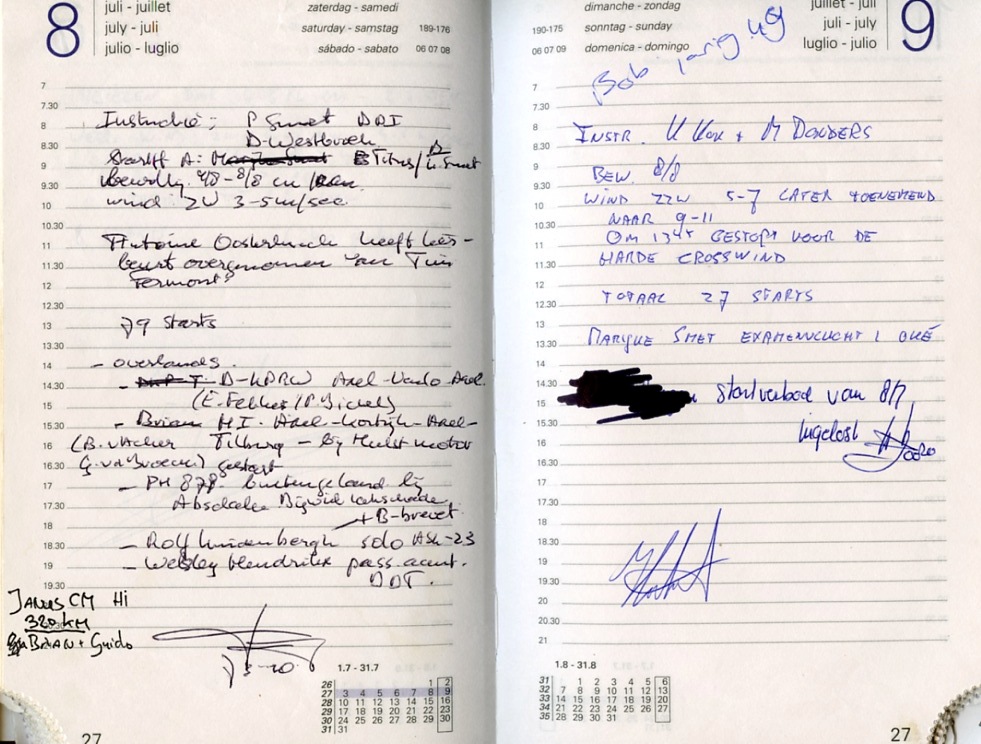 8
juli - juillet
july - juli
julio - luglio
zaterdag - samedi
saturday - samstag
sábado - sabato
189-176
06 07 08
7
7.30
8
8.30
9
9.30
10
10.30
11
11.30
12
12.30
13
13.30
14
14.30
15
15.30
16
16.30
17
17.30
18
18.30
19
19.30
Instructie: P Smet DDI
D. Westbroek
Startff A: B Titus/ D Smet
bewolkg 7/8 - 8/8 cu
wind ZW 3-5m/sec.
Antoine Oosterlinck heeft lies-
beurt overgenomen van Tim
Fermont
79 starts
- overlands.
- D-KDRW Axel-Venlo-Axel.
(E. Fekkes/P. Gickel)
- Brian HI. Axel-Kortrijk-Axel-
Tilburg - bij Hulst motor
gestart
- PH 878 buitengeland bij
Absdale
+ B-brevet
- Rolf Lindenbergh solo ASK-23
- Wesley Hendrikx pass. acc.
DDI.
JANUS CM HI
320 KM
BRIAN + Guido
1.7 - 31.7
26 1 2
27 3 4 5 6 7 8 9
28 10 11 12 13 14 15 16
29 17 18 19 20 21 22 23
30 24 25 26 27 28 29 30
31 31
27
dimanche - zondag
sonntag - sunday
domenica - domingo
190-175
06 07 09
juillet - juli
juli - july
luglio - julio
9
Bob jarig 49
7
7.30
8
8.30
9
9.30
10
10.30
11
11.30
12
12.30
13
13.30
14
14.30
15
15.30
16
16.30
17
17.30
18
18.30
19
19.30
20
20.30
21
INSTR. K Kok + M DONDERS
BEW. 8/8
WIND ZZW 5-7 LATER TOENEMEND
NAAR 9-11
OM 1345 GESTOPT VOOR DE
HARDE CROSSWIND
TOTAAL 27 STARTS
MARIJKE SMET EXAMENVLUCHT 1 OKÉ
startverbod van 8/7
ingelost
1.8 - 31.8
31 1 2 3 4 5 6
32 7 8 9 10 11 12 13
33 14 15 16 17 18 19 20
34 21 22 23 24 25 26 27
35 28 29 30 31
27